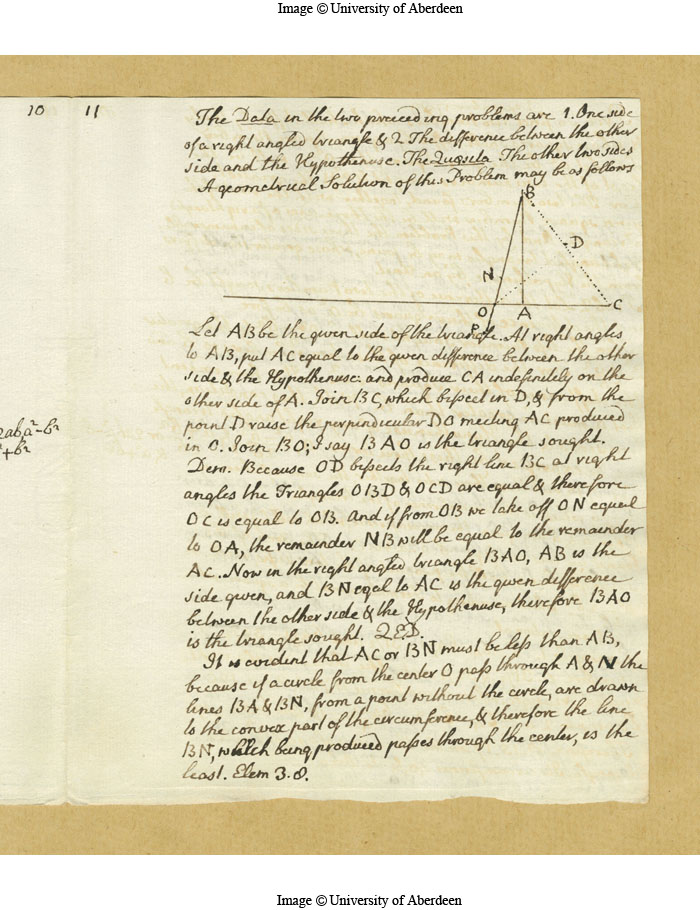 Image © University of Aberdeen
10 11
The Data in the two preceeding problems are 1. One side
of a right angled triangle & 2 The difference between the other
side and the Hypothenuse. The Quæsita The other two sides
A geometrical Solution of this Problem may be as follows
B
D
N
O A C
P
Let AB be the given side of the triangle. At right angles
to AB, put AC equal to the given difference between the other
side & the Hypothenuse: and produce CA indefinitely on the
other side of A. Join BC, which bissect in D, & from the
point D raise the perpendicular DO meeting AC produced
in O. Join BO; I say BAO is the triangle sought.
Dem. Because OD bissects the right line BC at right
angles the Triangles OBD & OCD are equal & therefore
OC is equal to OB. And if from OB we take off ON equeil
to OA, the remainder NB will be equal to the remainder
AC. Now in the right angled triangle BAO, AB is the
side given, and BN eqal to AC is the given difference
between the other side & the Hypothenuse, therefore BAO
is the triangle sought. QED.
It is evident that AC or BN must be less than AB,
because if a circle from the center O pass through A & N the
lines BA & BN, from a point without the circle, are drawn
to the convex part of the circumference, & therefore the line
BN, which being produced passes through the center, is the
least. Elem 3.8.
2aba²-b²
²+b²
Image © University of Aberdeen